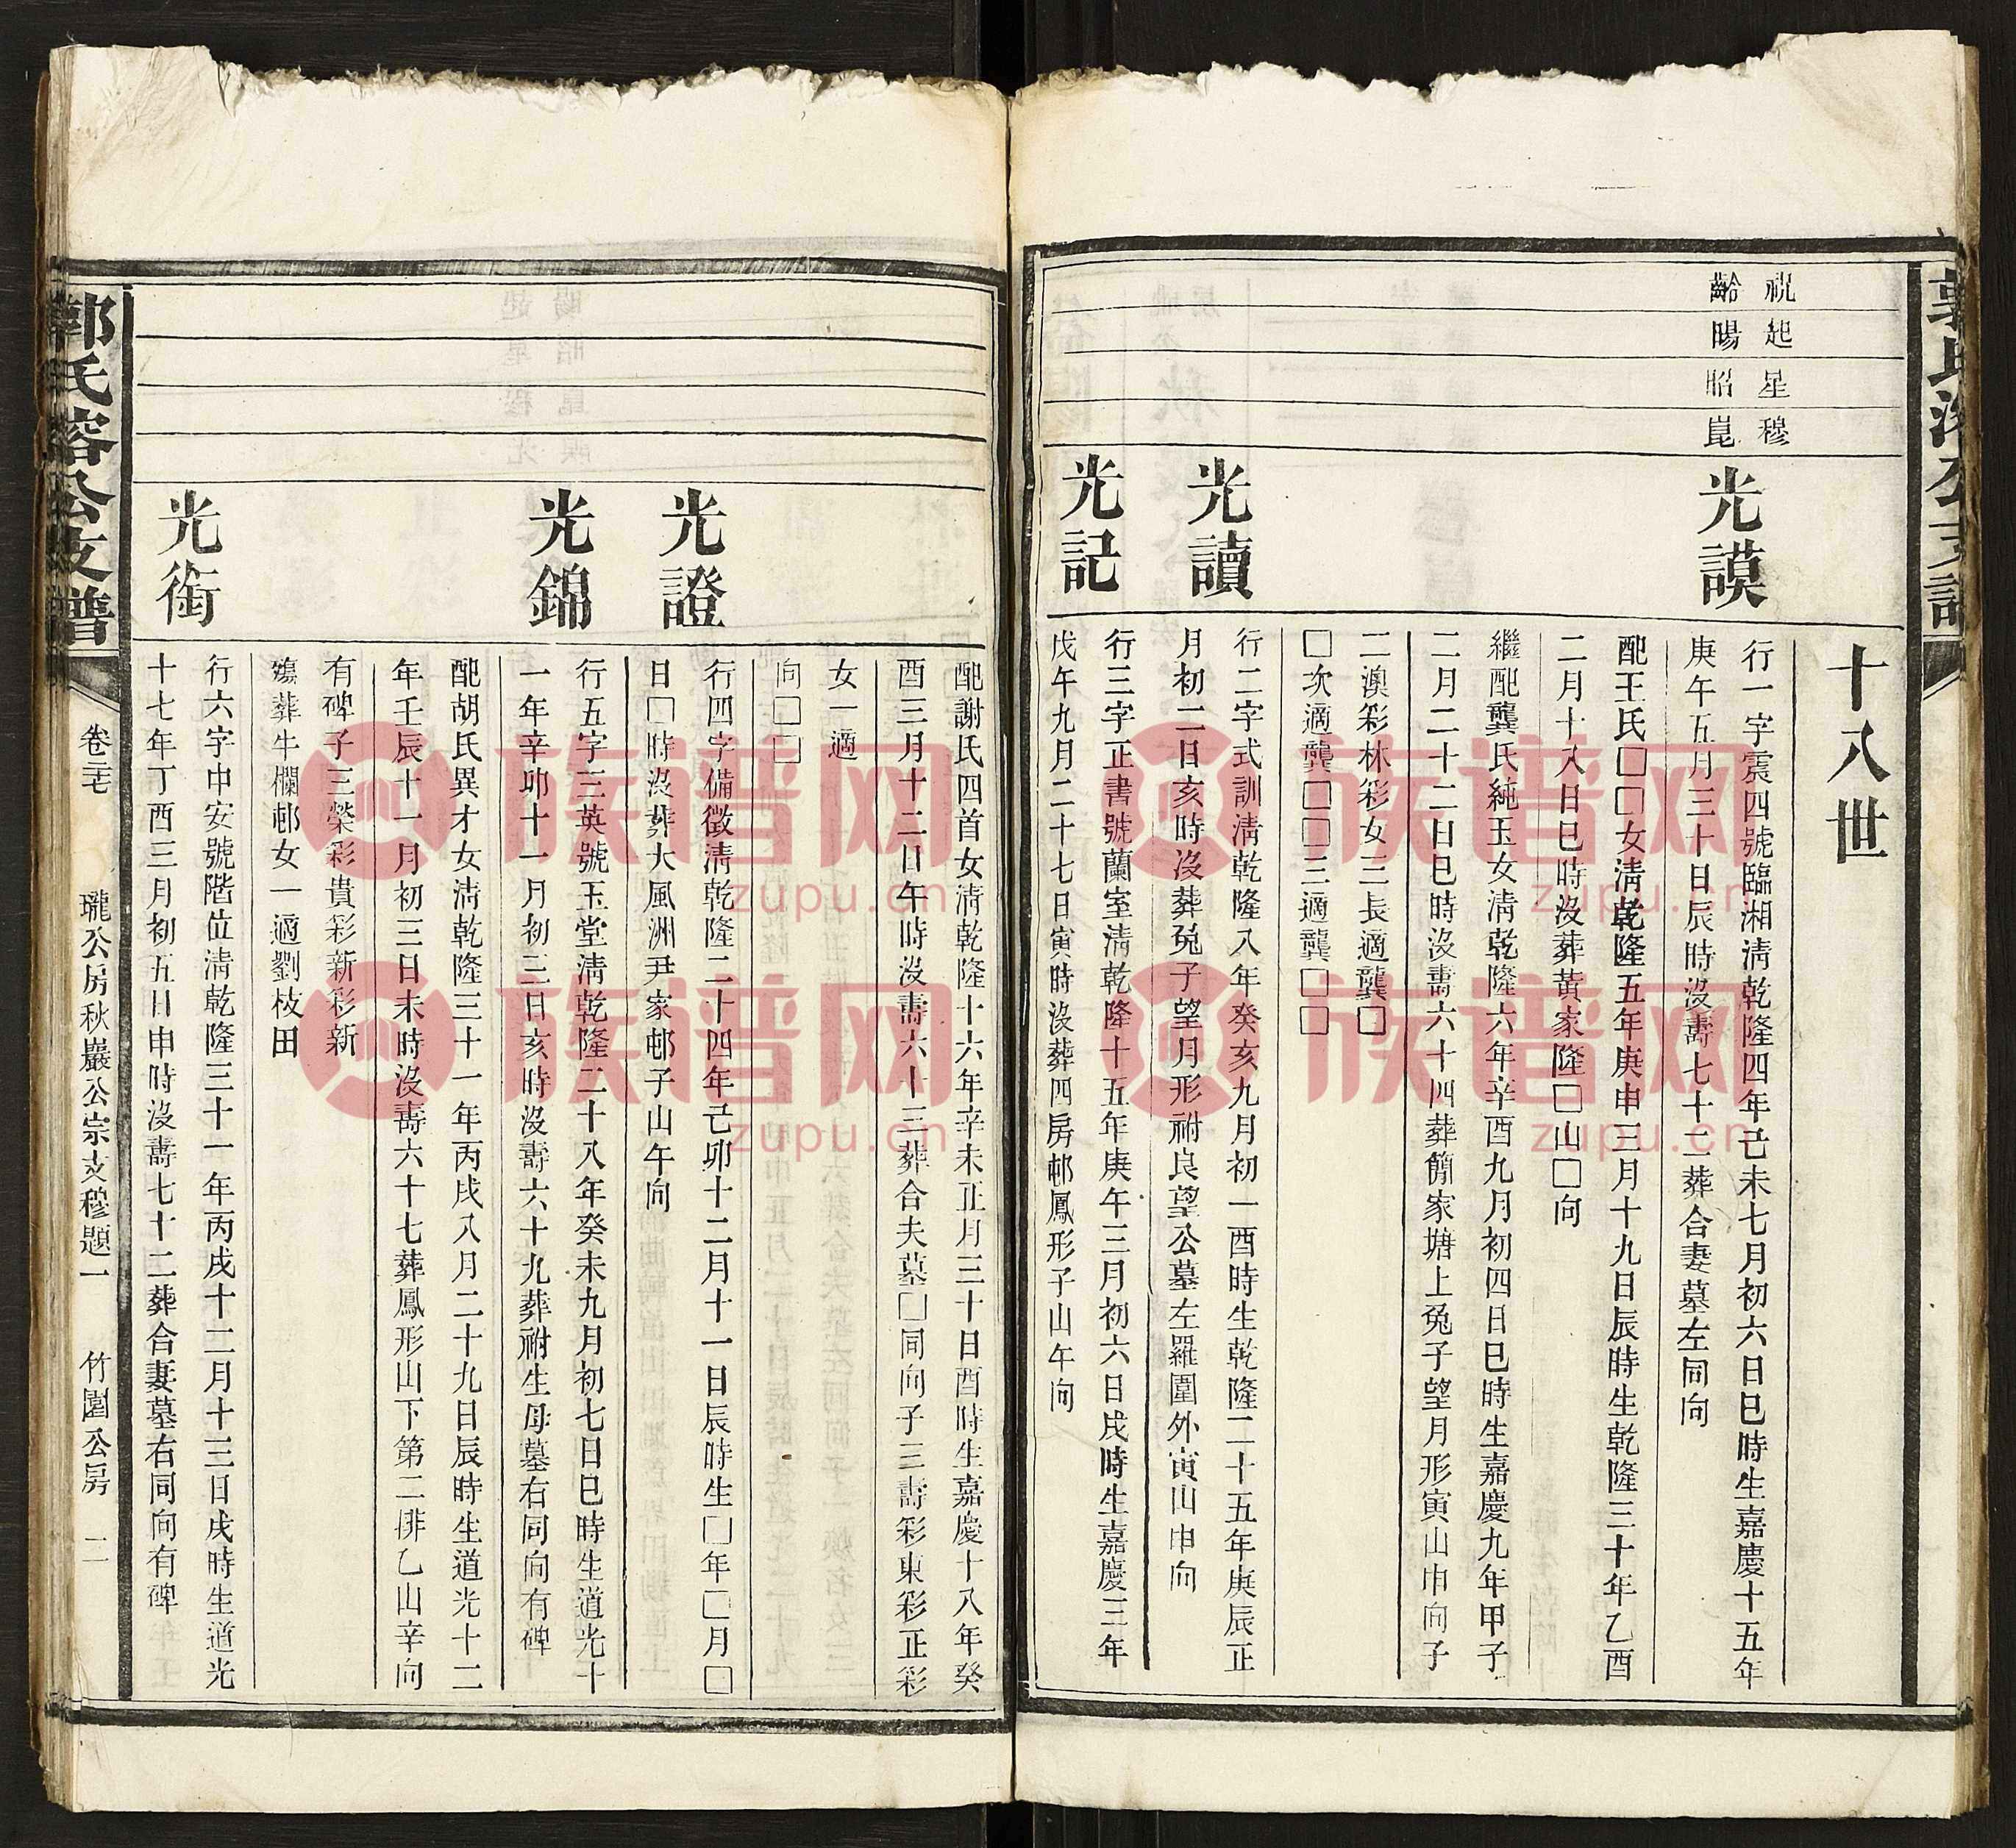 祝起星穆
齡暘昭崑
十八世
光謨
行一字震四號臨湘淸乾隆四年己未七月初六日巳時生嘉慶十五年
庚午五月三十日辰時沒壽七十二葬合妻墓左同向
配王氏□□女淸乾隆五年庚申三月十九日辰時生乾隆三十年乙酉
二月十八日巳時沒葬黃家隆□山□向
繼配龔氏純玉女淸乾隆六年辛酉九月初四日巳時生嘉慶九年甲子
二月二十二日巳時沒壽六十四葬簡家塘上兔子望月形寅山申向子
二澳彩林彩女三長適龔□
□次適龔□□三適龔□□
光讀
行二字式訓淸乾隆八年癸亥九月初一酉時生乾隆二十五年庚辰正
月初二日亥時沒葬兔子望月形祔良望公墓左羅圍外寅山申向
光記
行三字正書號蘭室淸乾隆十五年庚午三月初六日戌時生嘉慶三年
戊午九月二十七日寅時沒葬四房邨鳳形子山午向
配謝氏四首女淸乾隆十六年辛未正月三十日酉時生嘉慶十八年癸
酉三月十二日午時沒壽六十三葬合夫墓□同向子三壽彩東彩正彩
女一適
向□□
光證
行四字備徵淸乾隆二十四年己卯十二月十一日辰時生□年□月□
日□時沒葬大風洲尹家邨子山午向
光錦
行五字三英號玉堂淸乾隆二十八年癸未九月初七日巳時生道光十
一年辛卯十一月初三日亥時沒壽六十九葬祔生母墓右同向有碑
配胡氏異才女淸乾隆三十一年丙戌八月二十九日辰時生道光十二
年壬辰十一月初三日未時沒壽六十七葬鳳形山下第二排乙山辛向
有碑子三榮彩貴彩新彩新
殤葬牛欄邨女一適劉枝田
光銜
行六字中安號階位淸乾隆三十一年丙戌十二月十三日戌時生道光
十七年丁酉三月初五日申時沒壽七十二葬合妻墓右同向有碑
郭氏溶公支譜
瓏公房秋巖公宗支穆題一
竹園公房
二
族谱网
zupu.cn
族谱网
zupu.cn
族谱网
zupu.cn
族谱网
zupu.cn